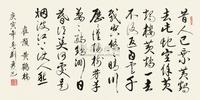 昔人已乘黃鶴
去此地空餘黃
鶴樓黃鶴一去
不復返白雲千
載空悠悠晴川
歷歷漢陽樹芳
草萋萋鸚鵡洲
日暮鄉關何處是
煙波江上使人愁
崔顥黃鶴樓
庚寅年